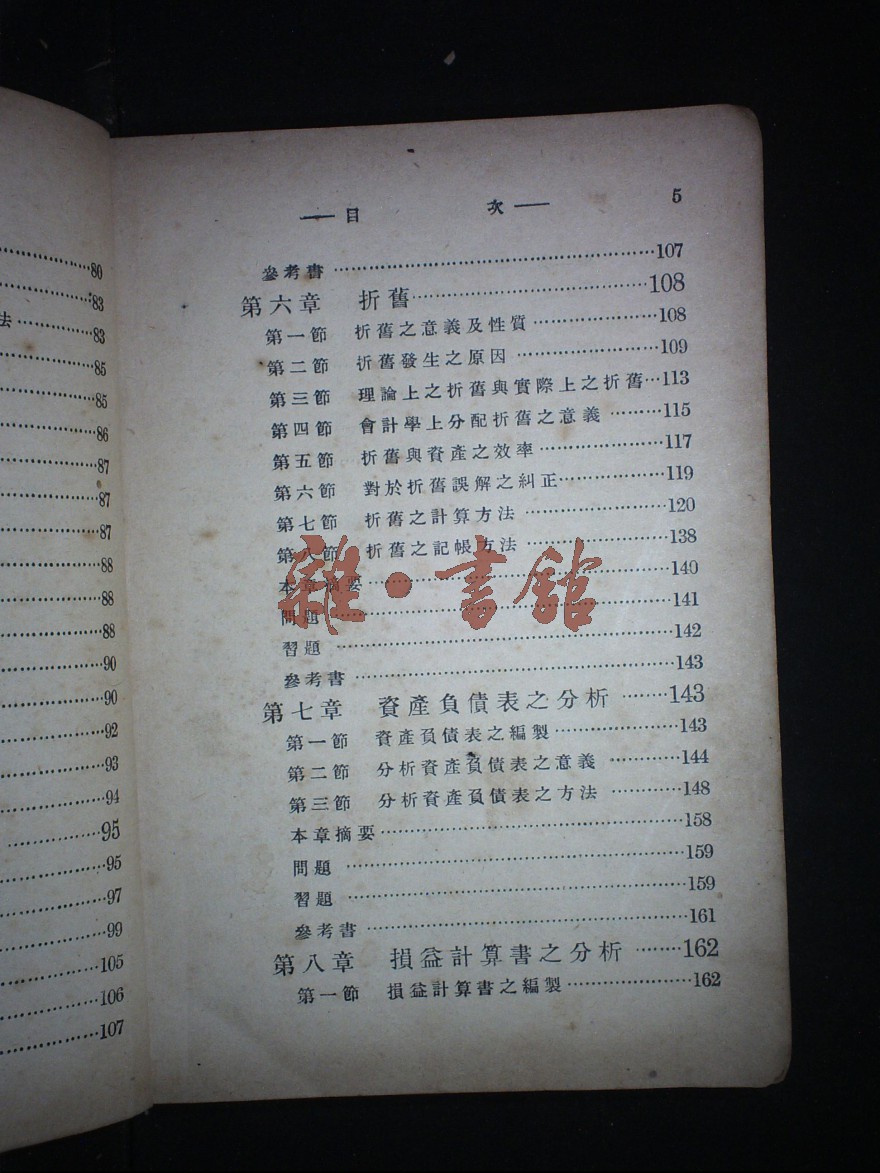 80
83
法……83
85
85
86
87
87
87
88
88
88
90
90
92
93
94
95
95
97
99
105
106
107
—目 次— 5
參考書……107
第六章 折舊……108
第一節 折舊之意義及性質……108
第二節 折舊發生之原因……109
第三節 理論上之折舊與實際上之折舊…113
第四節 會計學上分配折舊之意義……115
第五節 折舊與資產之效率……117
第六節 對於折舊誤解之糾正……119
第七節 折舊之計算方法……120
第八節 折舊之記帳方法……138
本章摘要……140
問題……141
習題……142
參考書……143
第七章 資產負債表之分析……143
第一節 資產負債表之編製……143
第二節 分析資產負債表之意義……144
第三節 分析資產負債表之方法……148
本章摘要……158
問題……159
習題……159
參考書……161
第八章 損益計算書之分析……162
第一節 損益計算書之編製……162
雜·書館